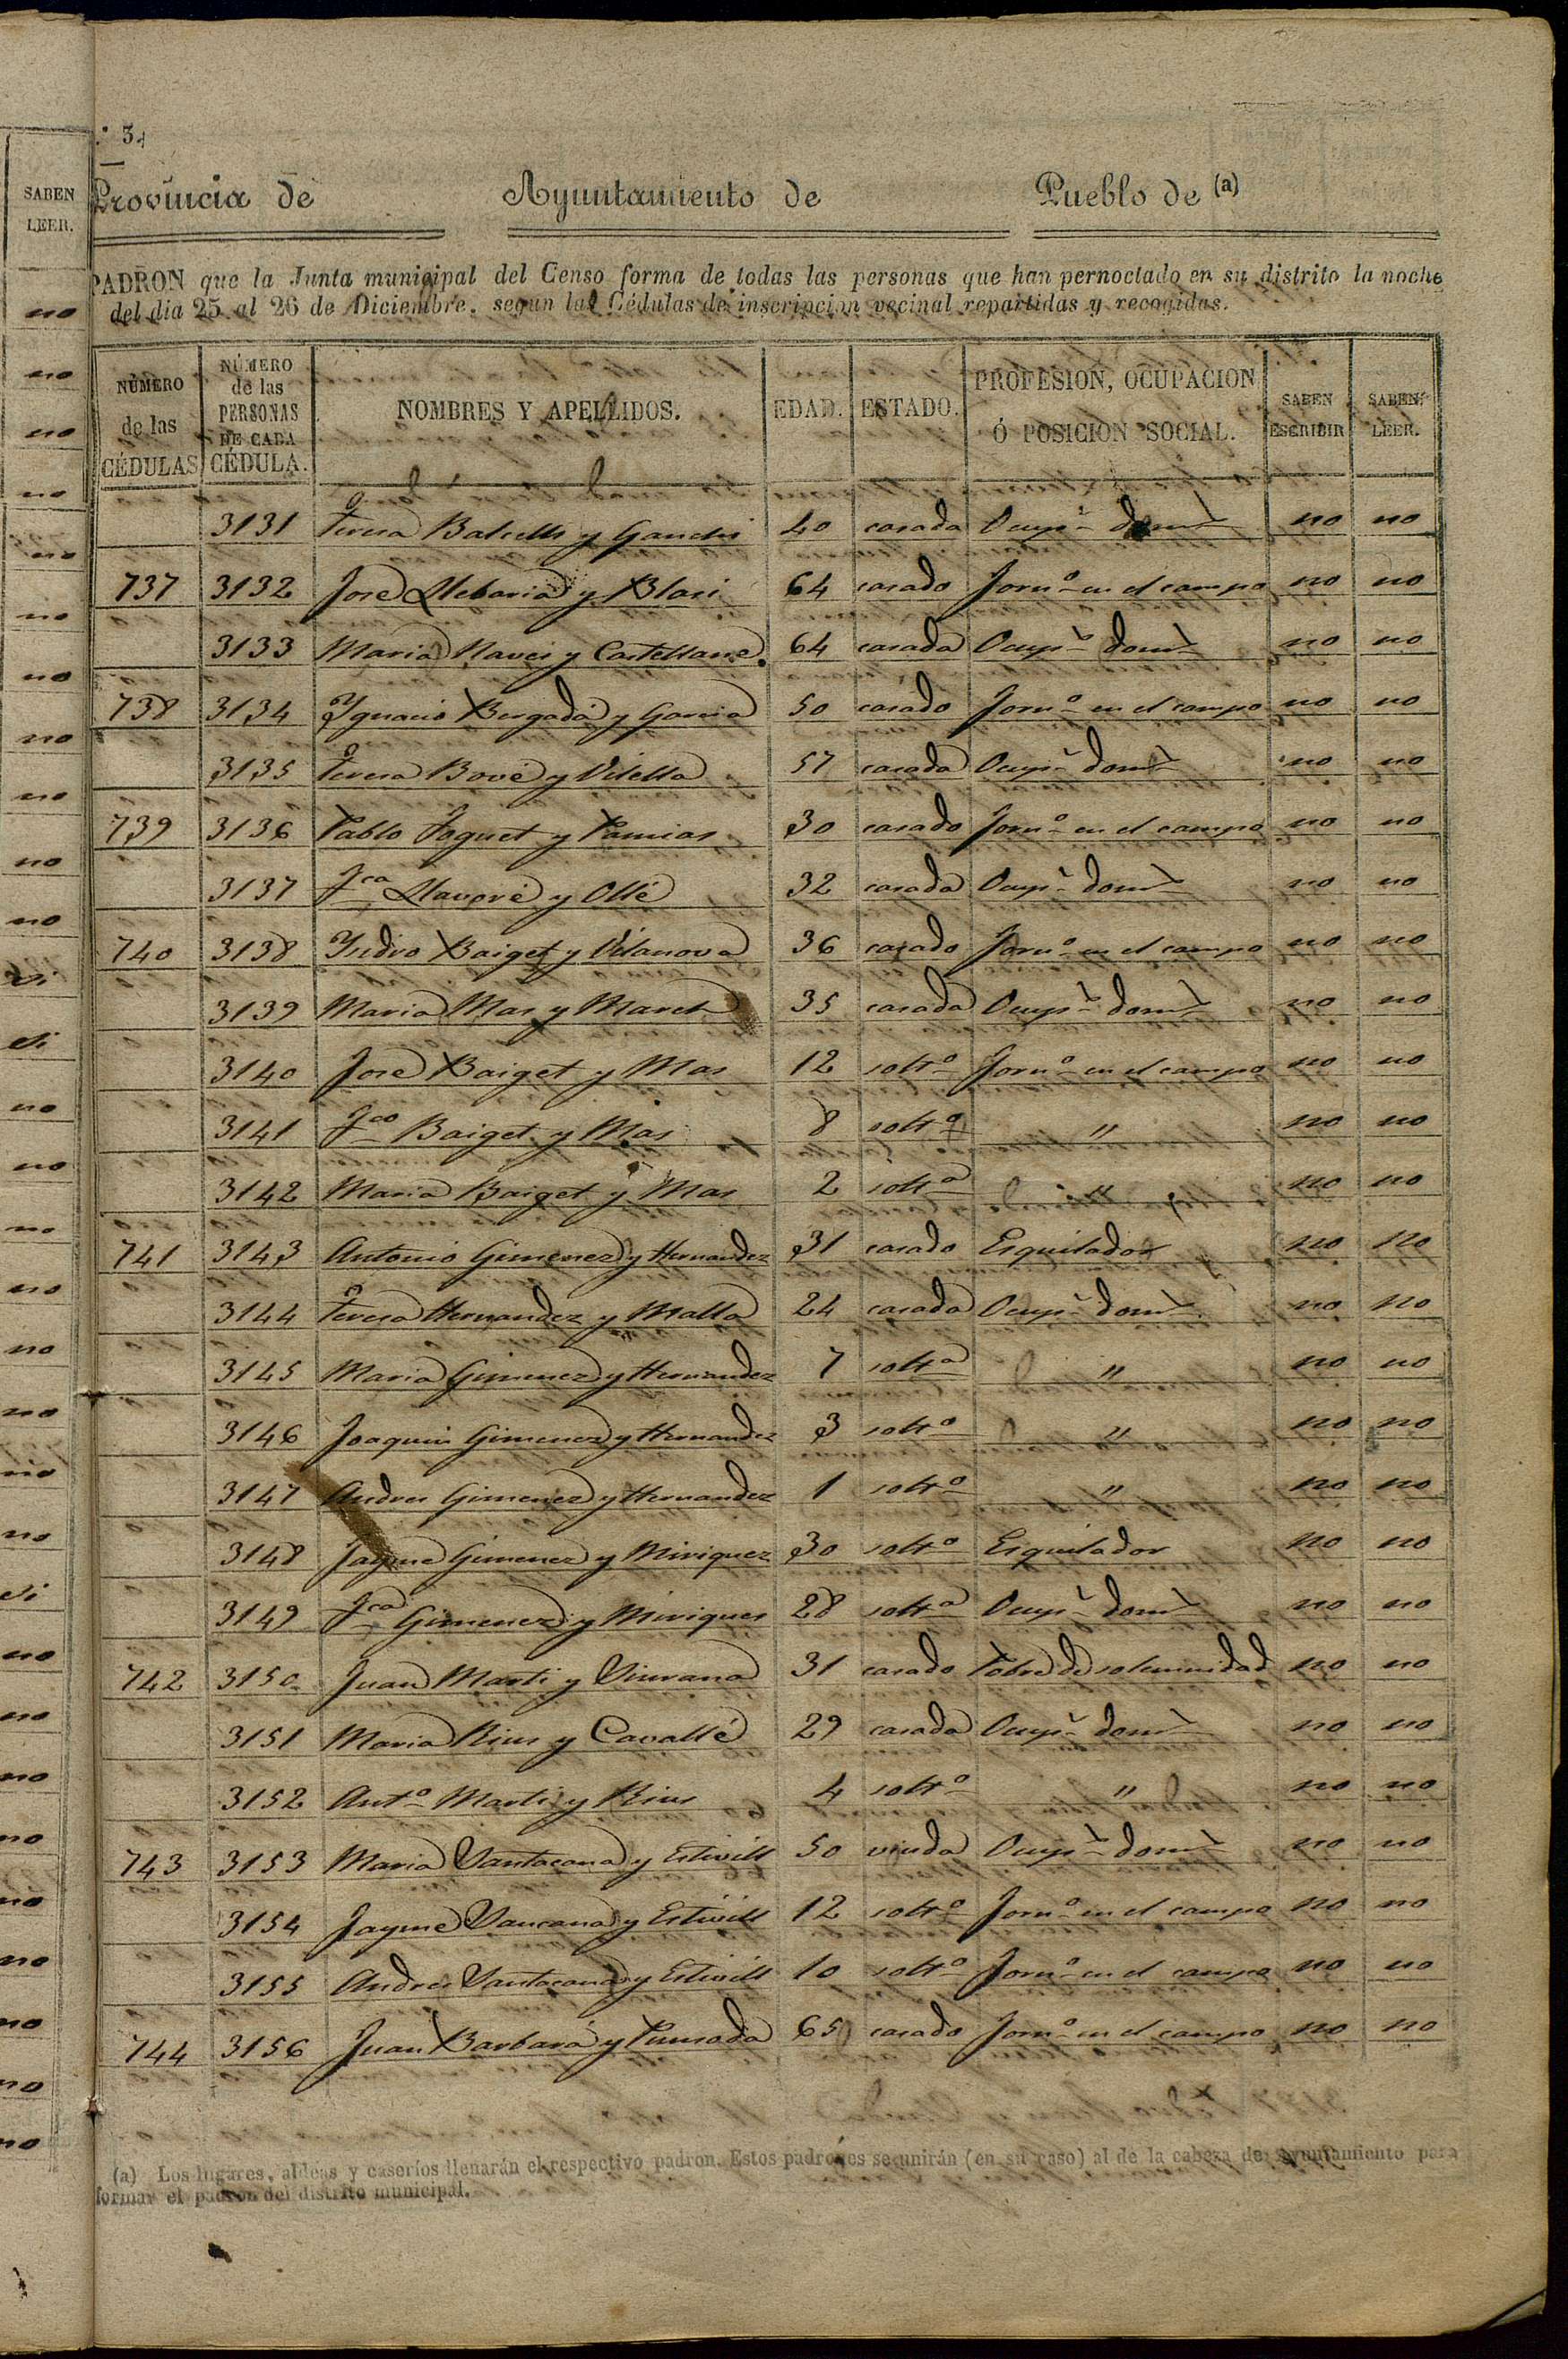 SABEN
LEER.
° 3.
Provincia de Ayuntamiento de Pueblo de (a)
PADRON que la Junta municipal del Censo forma de todas las personas que han pernoctado en su distrito la noche
del dia 25 al 26 de Diciembre, segun las Cédulas de inscripcion vecinal repartidas y recogidas.
NÚMERO de las CÉDULAS NÚMERO de las PERSONAS DE CADA CÉDULA. NOMBRES Y APELLIDOS. EDAD. ESTADO. PROFESION, OCUPACION Ó POSICION SOCIAL. SABEN ESCRIBIR SABEN LEER.
3131 Teresa Balcells y 40 casada Ocupn domt no no
737 3132 José Llebaria y Blasi 64 casado Jorno en el campo no no
3133 Maria Naves y Castellane 64 casada Ocupn domt no no
738 3134 Ygnacio Bergadá y Garcia 50 casado Jorno en el campo no no
3135 Teresa Bové y Vilella 57 casada Ocupn domt no no
739 3136 Pablo Foguet y Pamias 30 casado Jorno en el campo no no
3137 Fca Llavoré y Ollé 32 casada Ocupn domt no no
740 3138 Ysidro Baiget y Vilanova 36 casado Jorno en el campo no no
3139 Maria Mas y March 35 casada Ocupn domt no no
3140 José Baiget y Mas 12 soltro Jorno en el campo no no
3141 Fco Baiget y Mas 8 soltro " no no
3142 Maria Baiget y Mas 2 soltra " no no
741 3143 Antonio Gimenez y Hernandez 31 casado Esquilador no no
3144 Teresa Hernandez y Malla 24 casada Ocupn domt no no
3145 Maria Gimenez y Hernandez 7 soltra " no no
3146 Joaquin Gimenez y Hernandez 3 soltro " no no
3147 Andres Gimenez y Hernandez 1 soltro " no no
3148 Jayme Gimenez y Miriquez 30 soltro Esquilador no no
3149 Fca Gimenez y Miriques 28 soltra Ocupn domt no no
742 3150 Juan Marti y Siurana 31 casado Pobre de solemnidad no no
3151 Maria Rius y Cavallé 29 casada Ocupn domt no no
3152 Anto Marti y Rius 4 soltro " no no
743 3153 Maria Santacana y Estivill 50 viuda Ocupn domt no no
3154 Jayme Sancana y Estivill 12 soltro Jorno en el campo no no
3155 Andres Santacana y Estivill 10 soltro Jorno en el campo no no
744 3156 Juan Barbará y 65 casado Jorno en el campo no no
(a) Los lugares, aldeas y caseríos llenarán el respectivo padron. Estos padrones se unirán (en su caso) al de la cabeza de Ayuntamiento para
formar el padron del distrito municipal.